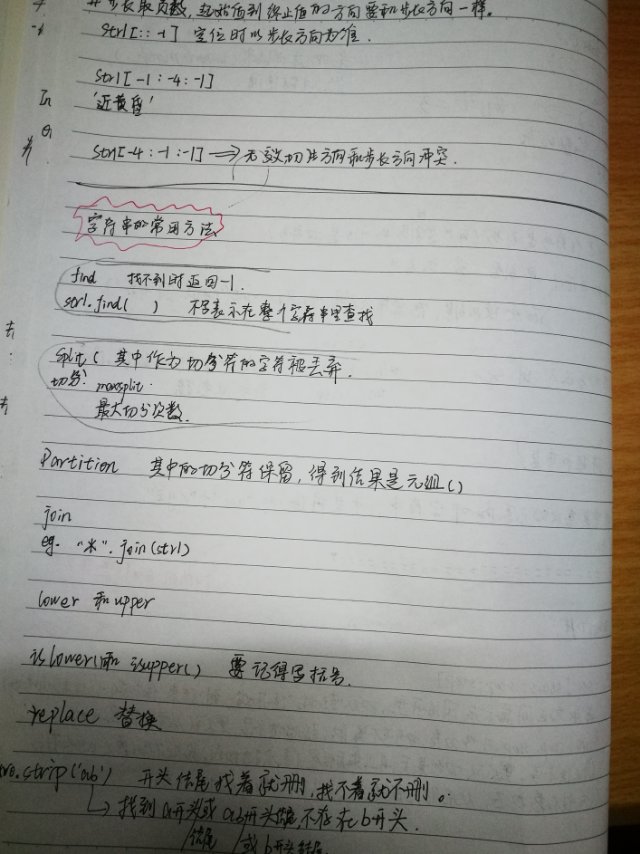 步长取负数,起始值到终止值的方向要和步长方向一样。
str1[::-1] 定位时以步长方向为准.
str1[-1:-4:-1]
'近黄昏'
str1[-4:-1:-1] → 无效切片方向和步长方向冲突.
字符串的常用方法
find 找不到时返回-1.
str1.find( ) 不写表示在整个字符串里查找
split( 其中作为切分符的字符被丢弃.
切分: maxsplit.
最大切分次数.
Partition 其中的切分符保留,得到结果是元组()
join
eg. "*".join(str1)
lower 和 upper
islower()和 isupper() 要记得写括号.
replace 替换
.strip('ab') 开头结尾找着就删,找不着就不删。
→ 找到a开头或ab开头 不存在b开头.
结尾 或b开头结尾